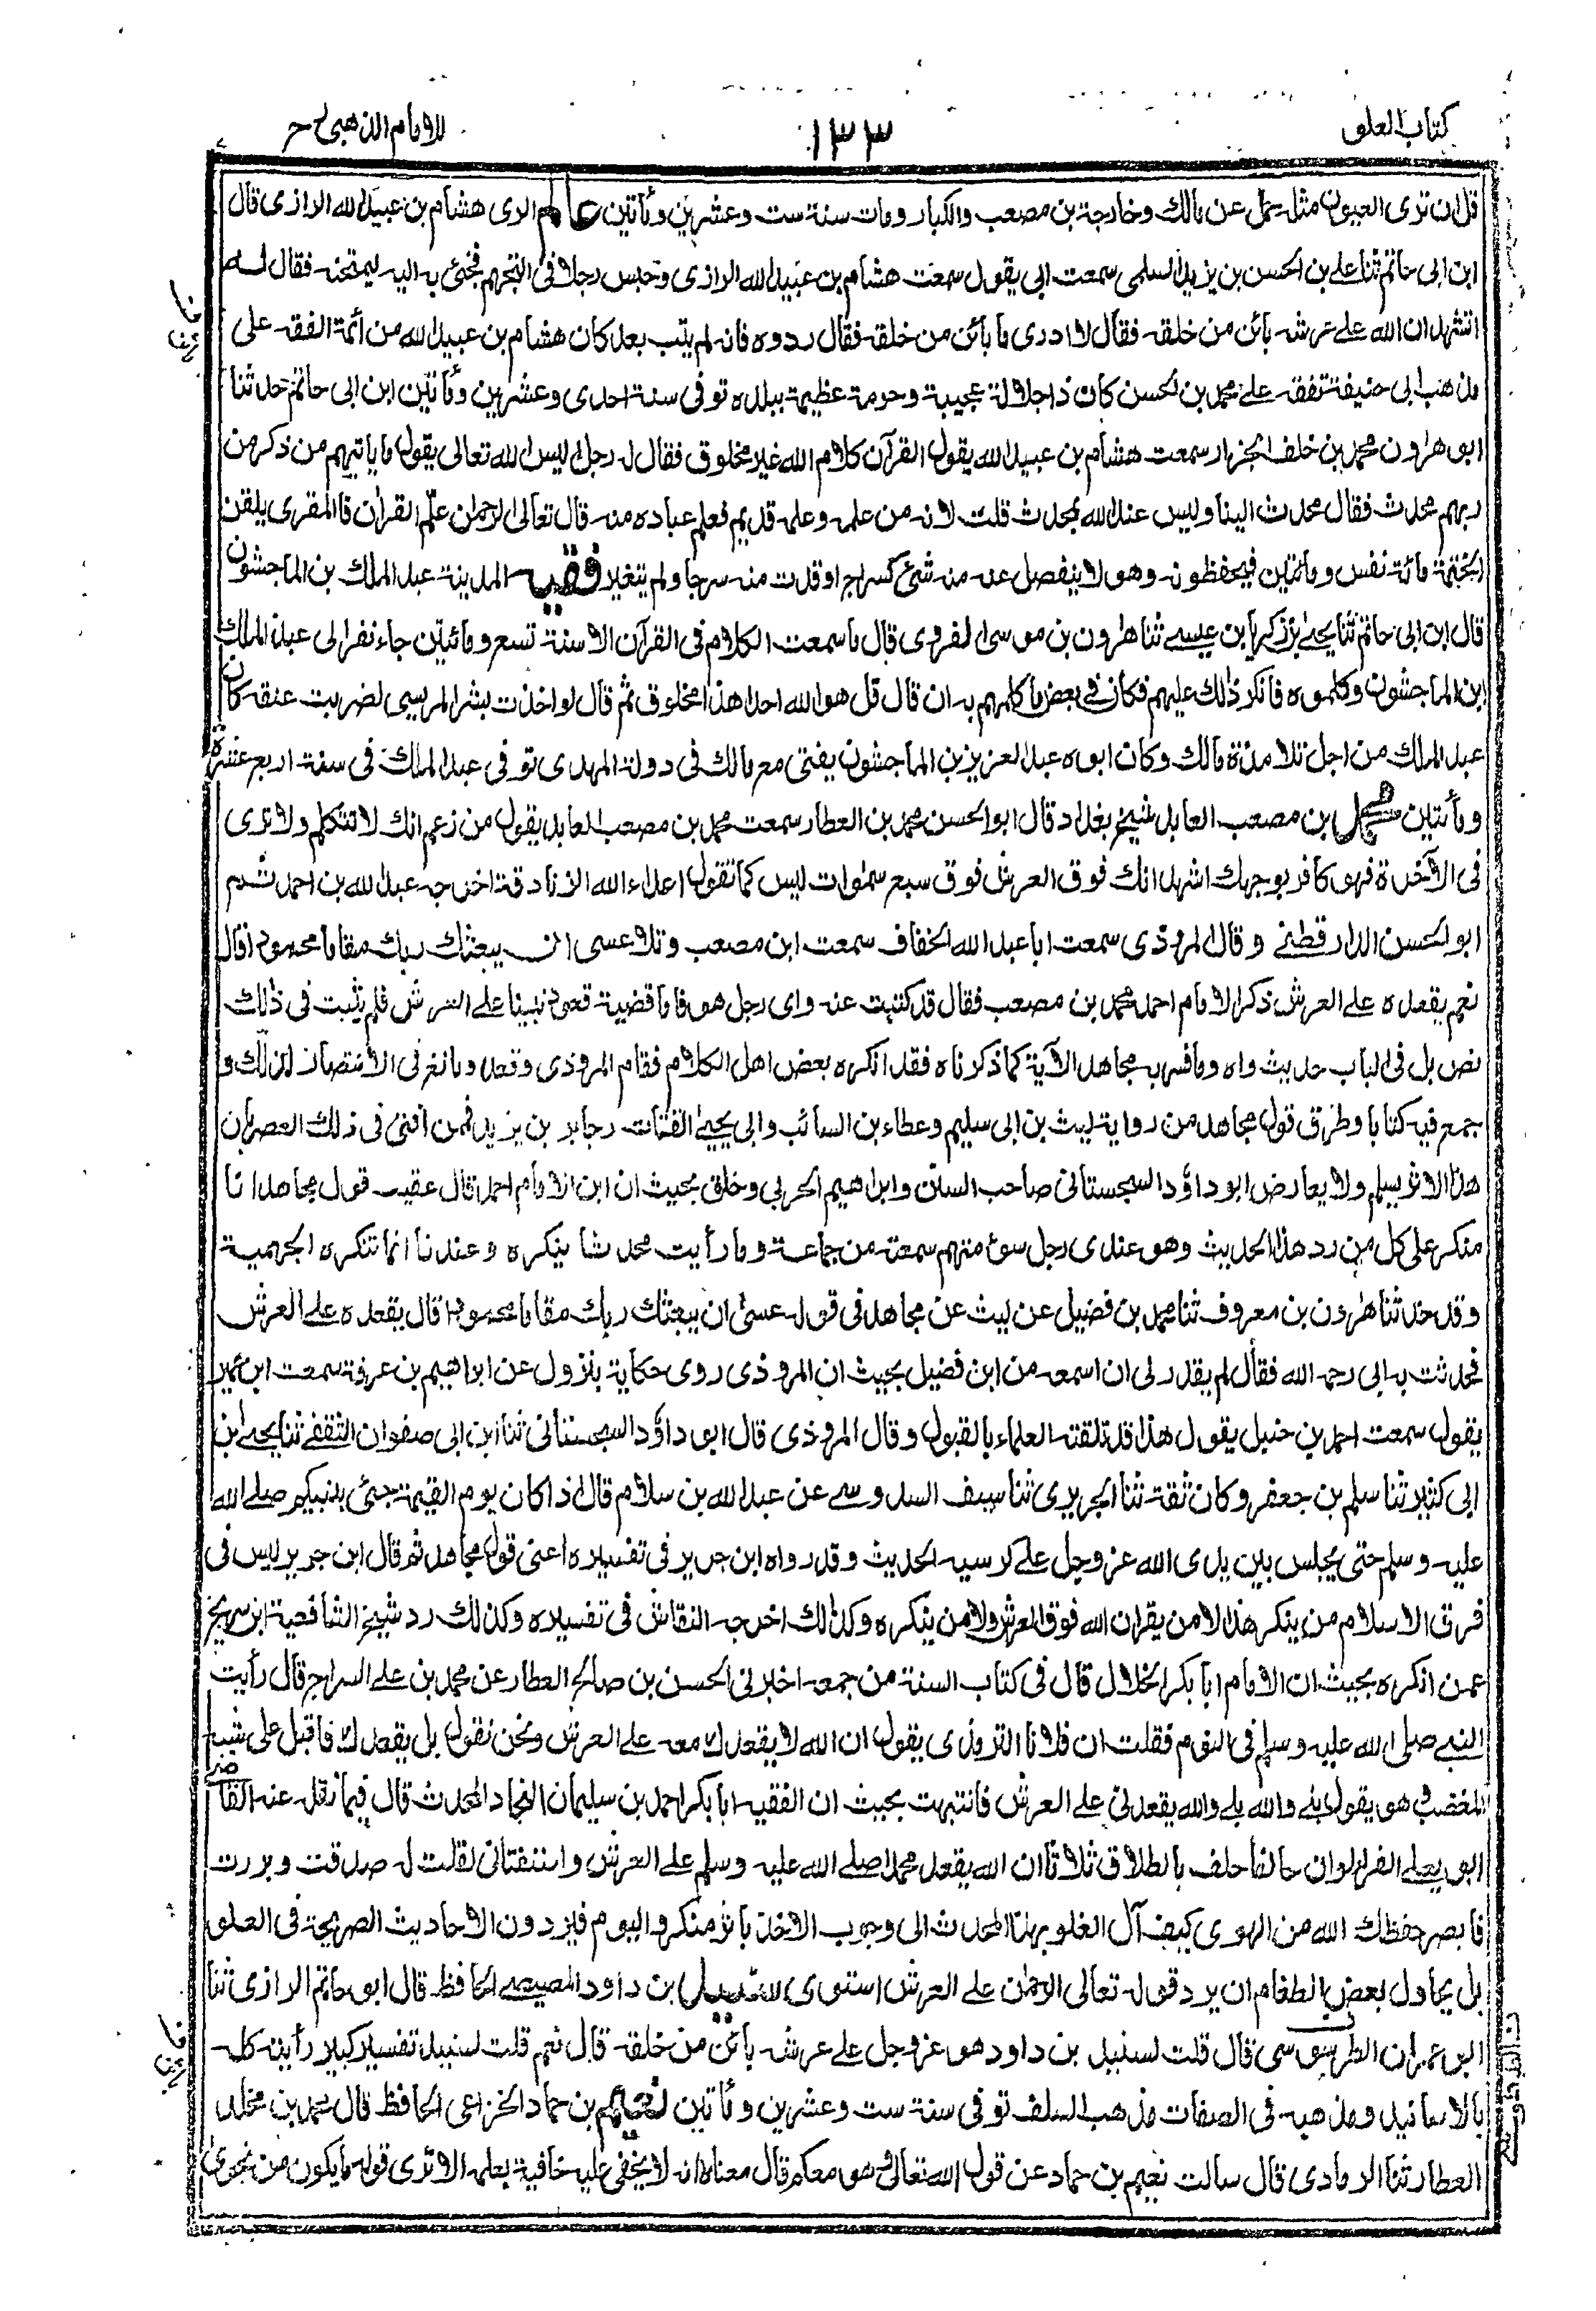 كتاب العلو
١٣٣
للامام الذهبي رح
قل ان ترى العيون مثله حمل عن مالك وخارجة بن مصعب والكبار ومات سنة ست وعشرين ومأتين عالم الرى هشام بن عبيد الله الرازى قال
ابن ابى حاتم ثنا على بن الحسن بن يزيد السلمى سمعت ابى يقول سمعت هشام بن عبيد الله الرازى وحبس رجلا فى التجهم فجئ به اليه ليمتحنه فقال له
اتشهد ان الله على عرشه بائن من خلقه فقال لا ادرى ما بائن من خلقه فقال ردوه فانه لم يتب بعد كان هشام بن عبيد الله من ائمة الفقه على
مذهب ابى حنيفة تفقه على محمد بن الحسن كان ذا جلالة عجيبة وحرمة عظيمة ببلده توفى سنة احدى وعشرين ومأتين ابن ابى حاتم حدثنا
ابو هرون محمد بن خلف الجزار سمعت هشام بن عبيد الله يقول القرآن كلام الله غير مخلوق فقال له رجل اليس الله تعالى يقول ما ياتيهم من ذكر من
ربهم محدث فقال محدث الينا وليس عند الله بمحدث قلت لانه من علمه وعلمه قديم فعلم عباده منه قال تعالى الرحمان علّم القرأن فالمقرى يلقن
الختمة مائة نفس ومائتين فيحفظونه وهو لا ينفصل عنه منه شئ كسراج اوقدت منه سرجا ولم يتغير فقيه المدينة عبد الملك بن الماجشون
قال ابن ابى حاتم ثنا يحيى بن زكريا بن عيسى ثنا هرون بن موسى الفروى قال ما سمعت الكلام فى القرآن الا سنة تسع ومائتين جاء نفر الى عبد الملك
ابن الماجشون وكلموه فانكر ذلك عليهم فكان فى بعض ما كلمهم به ان قال قل هو الله احد هذا مخلوق ثم قال لو اخذت بشر المريسى لضربت عنقه كان
عبد الملك من اجل تلامذة مالك وكان ابوه عبد العزيز بن الماجشون يفتى مع مالك فى دولة المهدى توفى عبد الملك فى سنة اربع عشرة
ومأتين محمد بن مصعب العابد شيخ بغداد قال ابو الحسن محمد بن العطار سمعت محمد بن مصعب العابد يقول من زعم انك لا تتكلم ولا ترى
فى الآخرة فهو كافر بوجهك اشهد انك فوق العرش فوق سبع سموات ليس كما تقول اعداء الله الزنادقة اخرجه عبد الله بن احمد ثم
ابو الحسن الدارقطنى وقال المروذى سمعت ابا عبد الله الخفاف سمعت ابن مصعب وتلا عسى ان يبعثك ربك مقاما محمودا قال
نعم يقعده على العرش ذكر الامام احمد محمد بن مصعب فقال قد كتبت عنه واى رجل هو فاما قضية قعود نبينا على العرش فلم يثبت فى ذلك
نص بل فى الباب حديث واه وما فسر به مجاهد الآية كما ذكرناه فقد انكره بعض اهل الكلام فقام المروذى وقعد وبالغ فى الانتصار لذلك و
جمع فيه كتابا وطرق قول مجاهد من رواية ليث بن ابى سليم وعطاء بن السائب وابى يحيى القتات وجابر بن يزيد فمن افتى فى ذلك العصر بان
هذا الاثر يسلم ولا يعارض ابو داؤد السجستانى صاحب السنن وابراهيم الحربى وخلق بحيث ان ابن الامام احمد قال عقيب قول مجاهد انا
منكر على كل من رد هذا الحديث وهو عندى رجل سوء متهم سمعته من جماعة وما رأيت محدثا ينكره وعندنا انما تنكره الجهمية
وقد حدثنا هرون بن معروف ثنا محمد بن فضيل عن ليث عن مجاهد فى قوله عسى ان يبعثك ربك مقاما محمودا قال يقعده على العرش
فحدثت به ابى رحمه الله فقال لم يقدر لى ان اسمعه من ابن فضيل بحيث ان المروذى روى حكاية بنزول عن ابراهيم بن عرفة سمعت ابن عمير
يقول سمعت احمد بن حنبل يقول هذا قد تلقته العلماء بالقبول وقال المروذى قال ابو داؤد السجستانى ثنا ابن ابى صفوان الثقفى ثنا يحيى بن
ابى كثير ثنا سلم بن جعفر وكان ثقة ثنا الجريرى ثنا سيف السدوسى عن عبد الله بن سلام قال اذا كان يوم القيمة جئ بنبيكم صلى الله
عليه وسلم حتى يجلس بين يدى الله عز وجل على كرسيه الحديث وقد رواه ابن جرير فى تفسيره اعنى قول مجاهد ثم قال ابن جرير ليس فى
فرق الاسلام من ينكر هذا لا من يقر ان الله فوق العرش ولا من ينكره وكذلك اخرجه النقاش فى تفسيره وكذلك رد شيخ الشافعية ابن سريج
عمن انكره بحيث ان الامام ابا بكر الخلال قال فى كتاب السنة من جمعه اخبرنى الحسن بن صالح العطار عن محمد بن على السراج قال رأيت
النبى صلى الله عليه وسلم فى النوم فقلت ان فلانا الترمذى يقول ان الله لا يقعدك معه على العرش ونحن نقول بل يقعدك فاقبل على شبه
المغضب وهو يقول بلى والله بلى والله يقعدنى على العرش فانتبهت بحيث ان الفقيه ابا بكر احمد بن سليمان النجاد المحدث قال فيما نقله عنه القاضى
ابو يعلى الفراء لو ان حالفا حلف بالطلاق ثلاثا ان الله يقعد محمدا صلى الله عليه وسلم على العرش واستفتانى لقلت له صدقت وبررت
فابصر حفظك الله من الهوى كيف آل الغلو بهذا المحدث الى وجوب الاخذ باثر منكر واليوم فيردون الاحاديث الصريحة فى العلو
بل يحاول بعض الطغام ان يرد قوله تعالى الرحمن على العرش استوى سنيد بن داود المصيصى الحافظ قال ابو حاتم الرازى ثنا
ابو عمران الطرسوسى قال قلت لسنيد بن داود هو عز وجل على عرشه بائن من خلقه قال نعم قلت لسنيد تفسير كبير رأيته كله
بالاسانيد ومذهبه فى الصفات مذهب السلف توفى سنة ست وعشرين ومأتين نعيم بن حماد الخزاعى الحافظ قال محمد بن مخلد
العطار ثنا الرمادى قال سالت نعيم بن حماد عن قول الله تعالى وهو معكم قال معناه انه لا يخفى عليه خافية بعلمه الا ترى قوله ما يكون من نجوى